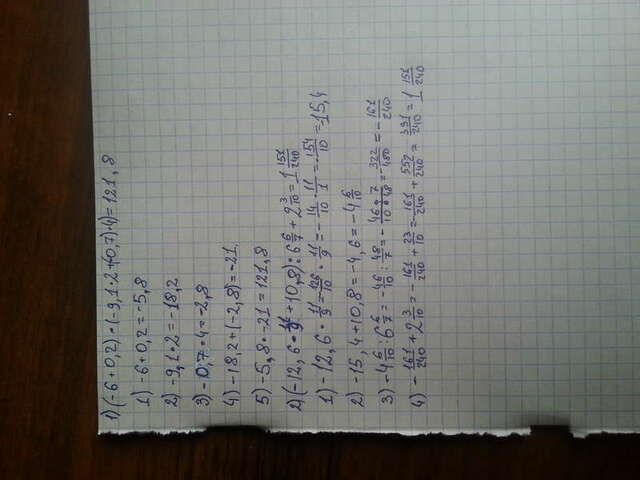 1) (-6+0,2)·(-9,1·2+(-0,7)·4)=121,8
1) -6+0,2=-5,8
2) -9,1·2=-18,2
3) -0,7·4=-2,8
4) -18,2+(-2,8)=-21.
5) -5,8·-21=121,8
2) (-12,6·11/9+10,8):6 6/7+2 3/10=1 151/240
1) -12,6·11/9=126/10·11/9=-14/10·11/1=-154/10=15,4
2) -15,4+10,8=-4,6=-4 6/10
3) -4 6/10:6 6/7=-46/10:48/7=-46/10·7/48=-322/480=-161/240
4) -161/240+2 3/10=-161/240+23/10=-161/240+552/240=391/240=1 151/240